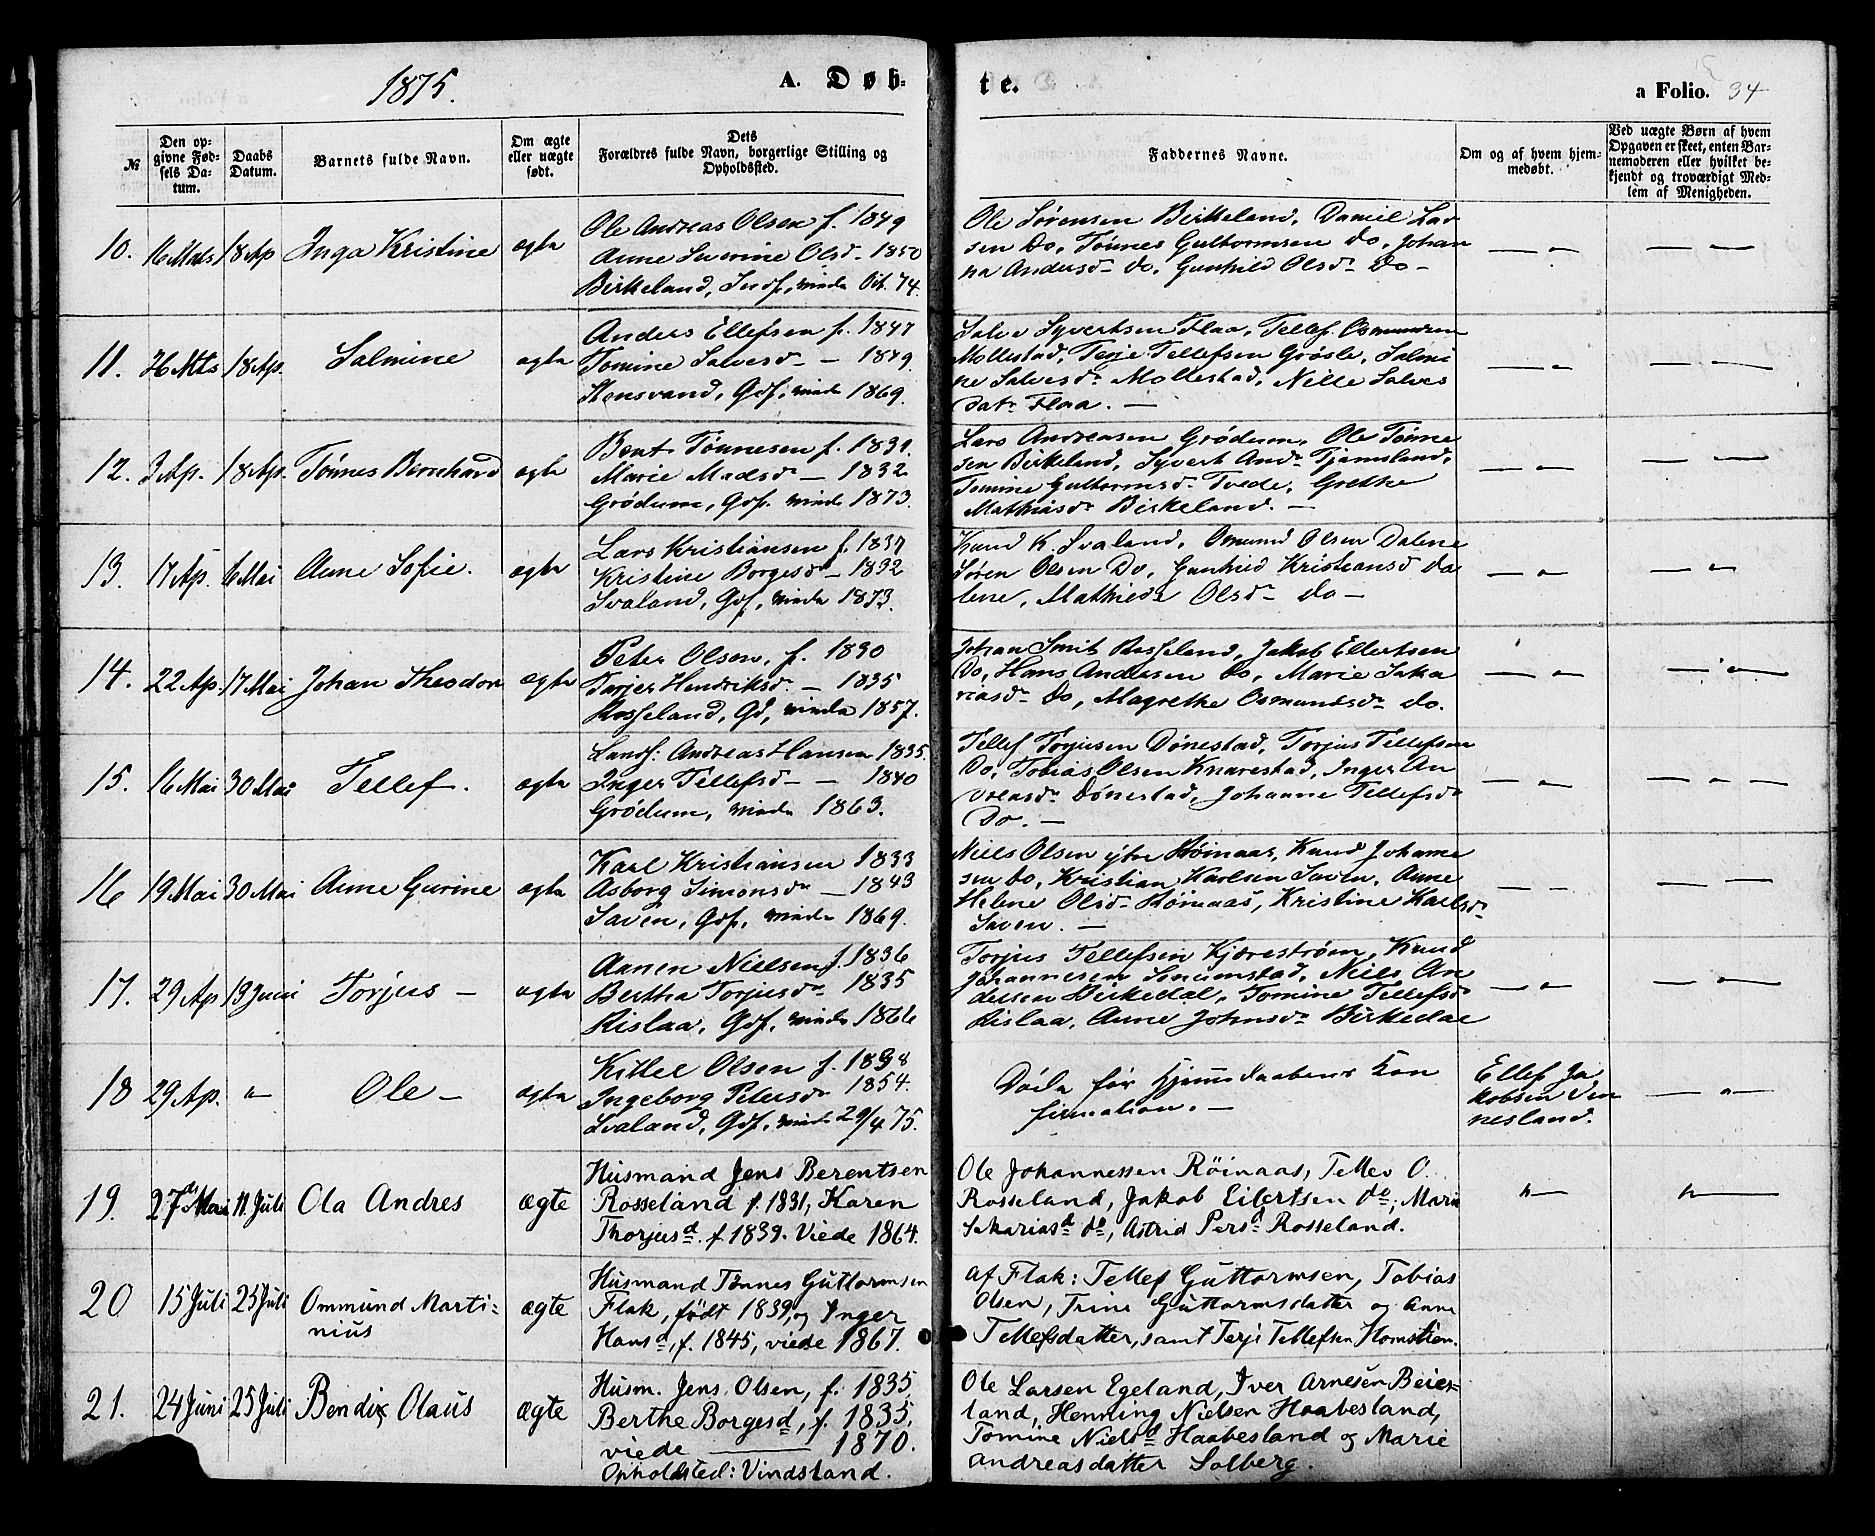 1875.
A. Døb-
te.
a Folio. 34
№
Den op-
givne Fød-
sels Da-
tum.
Daabs
Datum.
Barnets fulde Navn.
Om ægte
eller uægte
født.
Dets
Forældres fulde Navn, borgerlige Stilling og
Opholdssted.
Faddernes Navne.
Om og af hvem hjem-
medøbt.
Ved uægte Børn af hvem
Opgaven er skeet, enten Bar-
nemoderen eller hvilket be-
kjendt og troværdigt Med-
lem af Menigheden.
10. 16 Mats 18 Ap Inga Kristine ægte
Ole Andreas Olsen f. 1849
Anne Severine Olsd. 1850
Birkeland, Inds, viede Okt. 74.
Ole Sørensen Birkeland, Daniel Lar
sen Do, Tønnes Guttormsen do, Johan
na Andersd. do, Gunhild Olsd. Do —
11. 26 Mts 18 Ap. Salmine ægte
Anders Ellefsen f. 1847
Tomine Salvesd — 1849
Stensvand, Gdf, viede 1869.
Salve Syvertsen Flaa, Tellef Osmundsen
Mollestad, Terje Tellefsen Grösle, Salmi
ne Salvesd. Mollestad, Nille Salves
dat. Flaa. —
12. 3 Ap. 18 Ap. Tønnes Bernhard ægte
Bent Tønnesen f. 1831.
Marie Madsd — 1832
Grödum, Gdf. viede 1873.
Lars Andreasen Grödum, Ole Tønne
sen Birkeland, Syvert And. Tjomsland,
Tomine Guttormsd. Tvede, Grethe
Mathiasd. Birkeland. —
13. 17 Ap. 6 Mai Anne Sofie. ægte
Lars Kristiansen f. 1837
Kristine Borgesd — 1832
Svaland, Gdf, viede 1873.
Knud K. Svaland, Osmund Olsen Dalene
Søren Olsen Do, Gunhild Kristiansd Da
lene, Mathilde Olsd — do —
14. 22 Ap. 17 Mai Johan Theodor ægte
Peter Olsen, f. 1830
Tarjer Hendriksd. — 1835
Rosseland, Gd, viede 1857.
Johan Smit Rosseland, Jakob Ellertsen
Do, Hans Andersen Do, Marie Saka
riasd. Do, Magrethe Osmundsd. do.
15. 16 Mai 30 Mai Tellef. ægte
Landh: Andreas Hansen 1835.
Inger Tellefsd — 1840
Grödum, viede 1863.
Tellef Torjusen Dönestad, Torjus Tellefsen
Do, Tobias Olsen Knarestad, Inger An
dreasd. Dönestad, Johanne Tellefsd.
Do. —
16 19 Mai 30 Mai Anne Gurine ægte
Karl Kristiansen 1833
Asborg Simonsd. — 1843
Saven, Gdf, viede 1869.
Niels Olsen ytre Röinaas, Knud Johanne
sen do, Kristian Karlsen Saven, Anne
Helene Olsd. Röinaas, Kristine Karlsd.
Saven. —
17. 29 Ap 13 Juni Torjus — ægte
Aanen Nielsen f. 1836
Bertha Torjusd. 1835
Rislaa, Gdf. viede 1866
Torjus Tellefsen Kjærestrøm, Knud
Johannesen Senumstad, Niels An
dersen Birkedal, Tomine Tellefsd.
Rislaa, Anne Johnsd. Birkedal
18 29 Ap. " Ole — ægte
Kittel Olsen f. 1838
Ingeborg Petersd. 1854.
Svaland, Gdf. viede 29/4 75.
Döde før Hjemmedaabens Kon
firmation. —
Ellef Ja
kobsen Ven
nesland.
19. 27de Mai 11. Juli Ola Andres ægte
Husmand Jens Berentsen
Rosseland f. 1831, Karen
Thorjusd. f. 1839. Viede 1864.
Ole Johannessen Röinaas, Tellev O.
Rosseland, Jakob Eilertsen do, Marie
Sakariasd do, Astrid Persd Rosseland.
20 15 Juli 25 Juli Ommund Marti-
nius ægte
Husmand Tønnes Guttormsen
Flak, født 1839, og Inger
Hansd, f. 1845, viede 1867.
Af Flak: Tellef Guttormsen, Tobias
Olsen, Trine Guttormsdatter og Anne
Tellefsdatter, samt Terje Tellefsen Homstien.
21. 24 Juni 25 Juli Bendix Olaus ægte
Husm. Jens Olsen, f. 1835,
Berthe Borgesd, f. 1835,
viede — 1870.
Opholdsted: Vindsland.
Ole Larsen Egeland, Iver Arnesen Beies-
land, Henning Nielsen Haabesland,
Tomine Nielsd Haabesland og Marie
Andreasdatter Solberg.